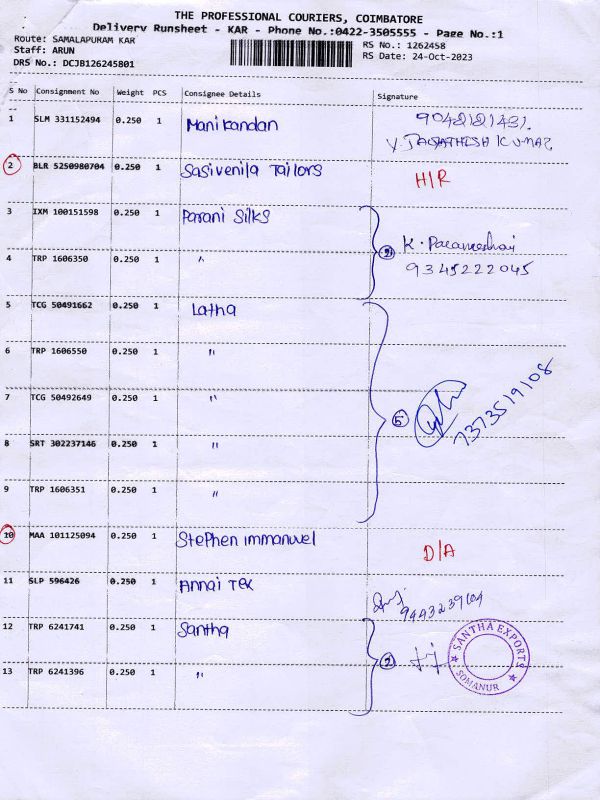 THE PROFESSIONAL COURIERS, COIMBATORE
Delivery Runsheet - KAR - Phone No.:0422-3505555 - Page No.:1
Route: SAMALAPURAM KAR
RS No.: 1262458
Staff: ARUN
RS Date: 24-Oct-2023
DRS No.: DCJB126245801
S No Consignment No Weight PCS Consignee Details Signature
1 SLM 331152494 0.250 1 Manikandan
2 BLR 5250980704 0.250 1 Sasivenila Tailors H/R
3 IXM 100151598 0.250 1 Parani Silks
K. Parameshwari
4 TRP 1606350 0.250 1 〃 2 9345222045
5 TCG 50491662 0.250 1 Latha
6 TRP 1606550 0.250 1 〃
7 TCG 50492649 0.250 1 〃 5 7373519108
8 SRT 302237146 0.250 1 〃
9 TRP 1606351 0.250 1 〃
10 MAA 101125094 0.250 1 Stephen immanuvel D/A
11 SLP 596426 0.250 1 Annai Tex
12 TRP 6241741 0.250 1 Santha
13 TRP 6241396 0.250 1 〃 2
SANTHA EXPORTS
SOMANUR